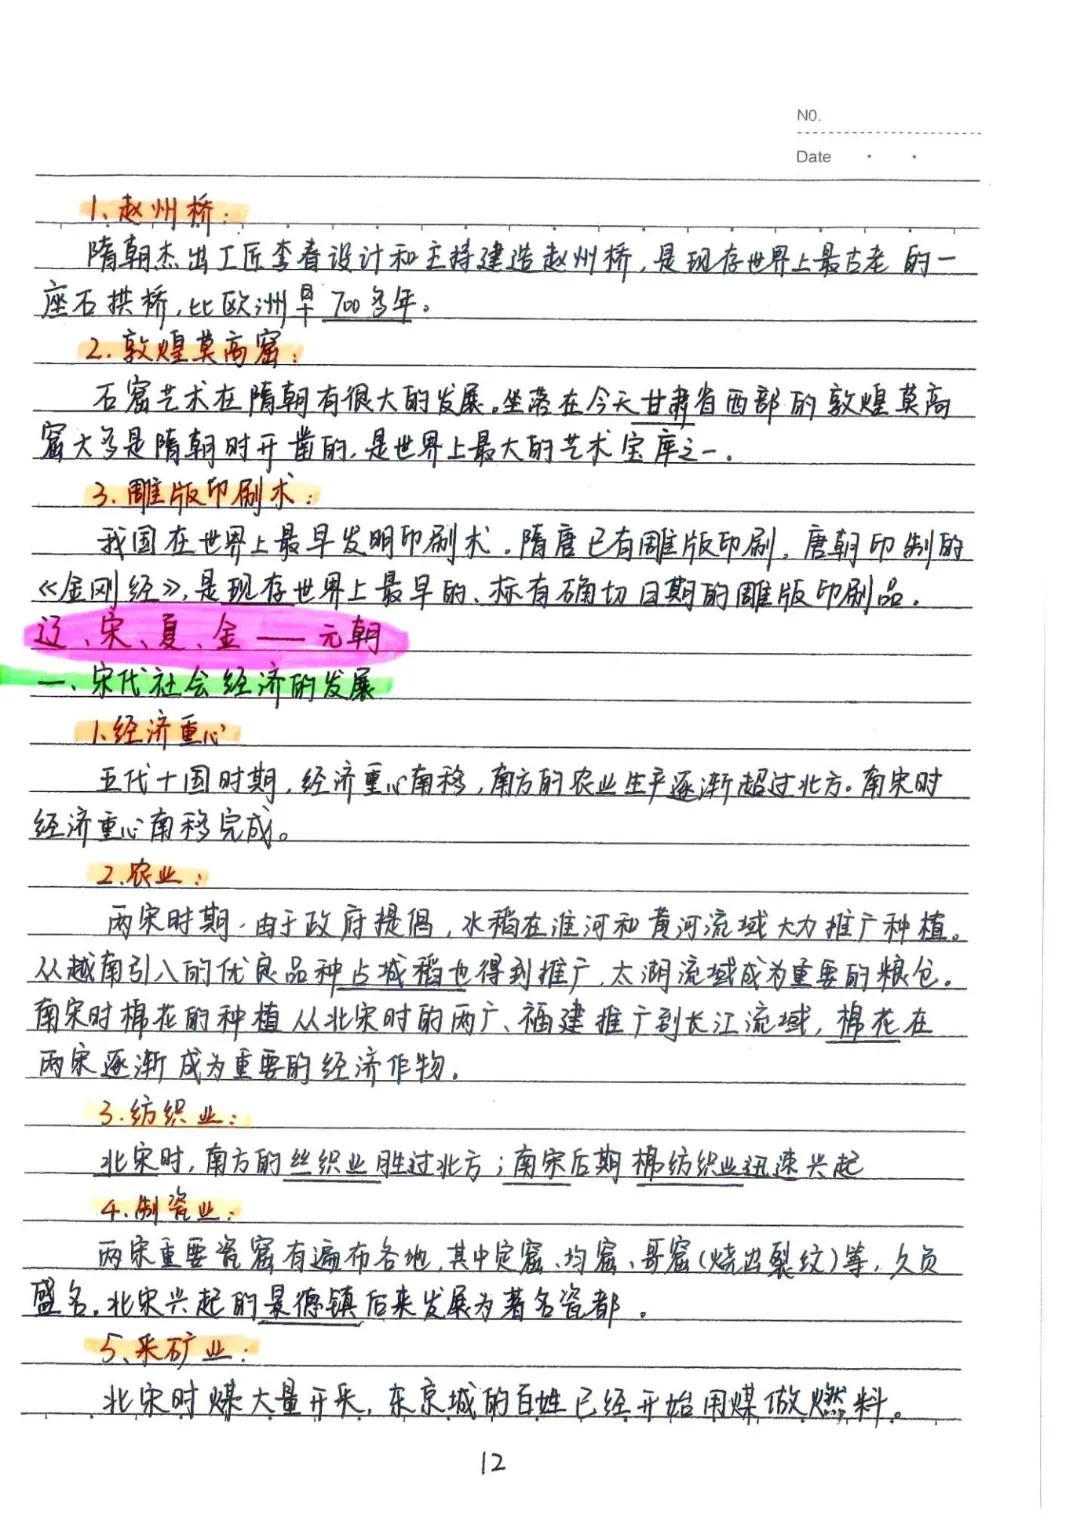 NO.
Date
1、赵州桥：
隋朝杰出工匠李春设计和主持建造赵州桥，是现存世界上最古老的一
座石拱桥，比欧洲早700多年。
2.敦煌莫高窟：
石窟艺术在隋朝有很大的发展。坐落在今天甘肃省西部的敦煌莫高
窟大多是隋朝时开凿的，是世界上最大的艺术宝库之一。
3.雕版印刷术：
我国在世界上最早发明印刷术。隋唐已有雕版印刷，唐朝印制的
《金刚经》，是现存世界上最早的、标有确切日期的雕版印刷品。
辽、宋、夏、金——元朝
一、宋代社会经济的发展
1.经济重心
五代十国时期，经济重心南移，南方的农业生产逐渐超过北方。南宋时
经济重心南移完成。
2.农业：
两宋时期，由于政府提倡，水稻在淮河和黄河流域大力推广种植。
从越南引入的优良品种占城稻也得到推广，太湖流域成为重要的粮仓。
南宋时棉花的种植从北宋时的两广、福建推广到长江流域，棉花在
两宋逐渐成为重要的经济作物。
3.纺织业：
北宋时，南方的丝织业胜过北方；南宋后期棉纺织业迅速兴起
4.制瓷业：
两宋重要瓷窑有遍布各地，其中定窑、均窑、哥窑(烧出裂纹)等，久负
盛名。北宋兴起的景德镇后来发展为著名瓷都。
5、采矿业：
北宋时煤大量开采，东京城的百姓已经开始用煤做燃料。
12